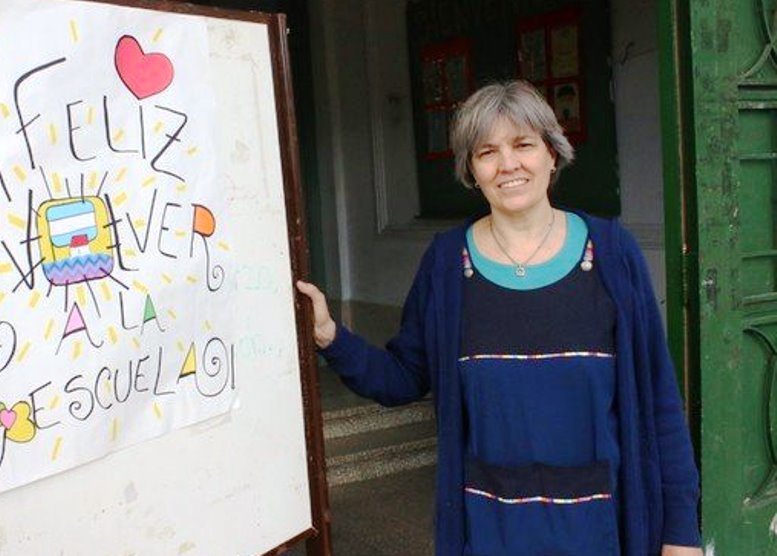 FELIZ
VOLVER
A LA
ESCUELA!